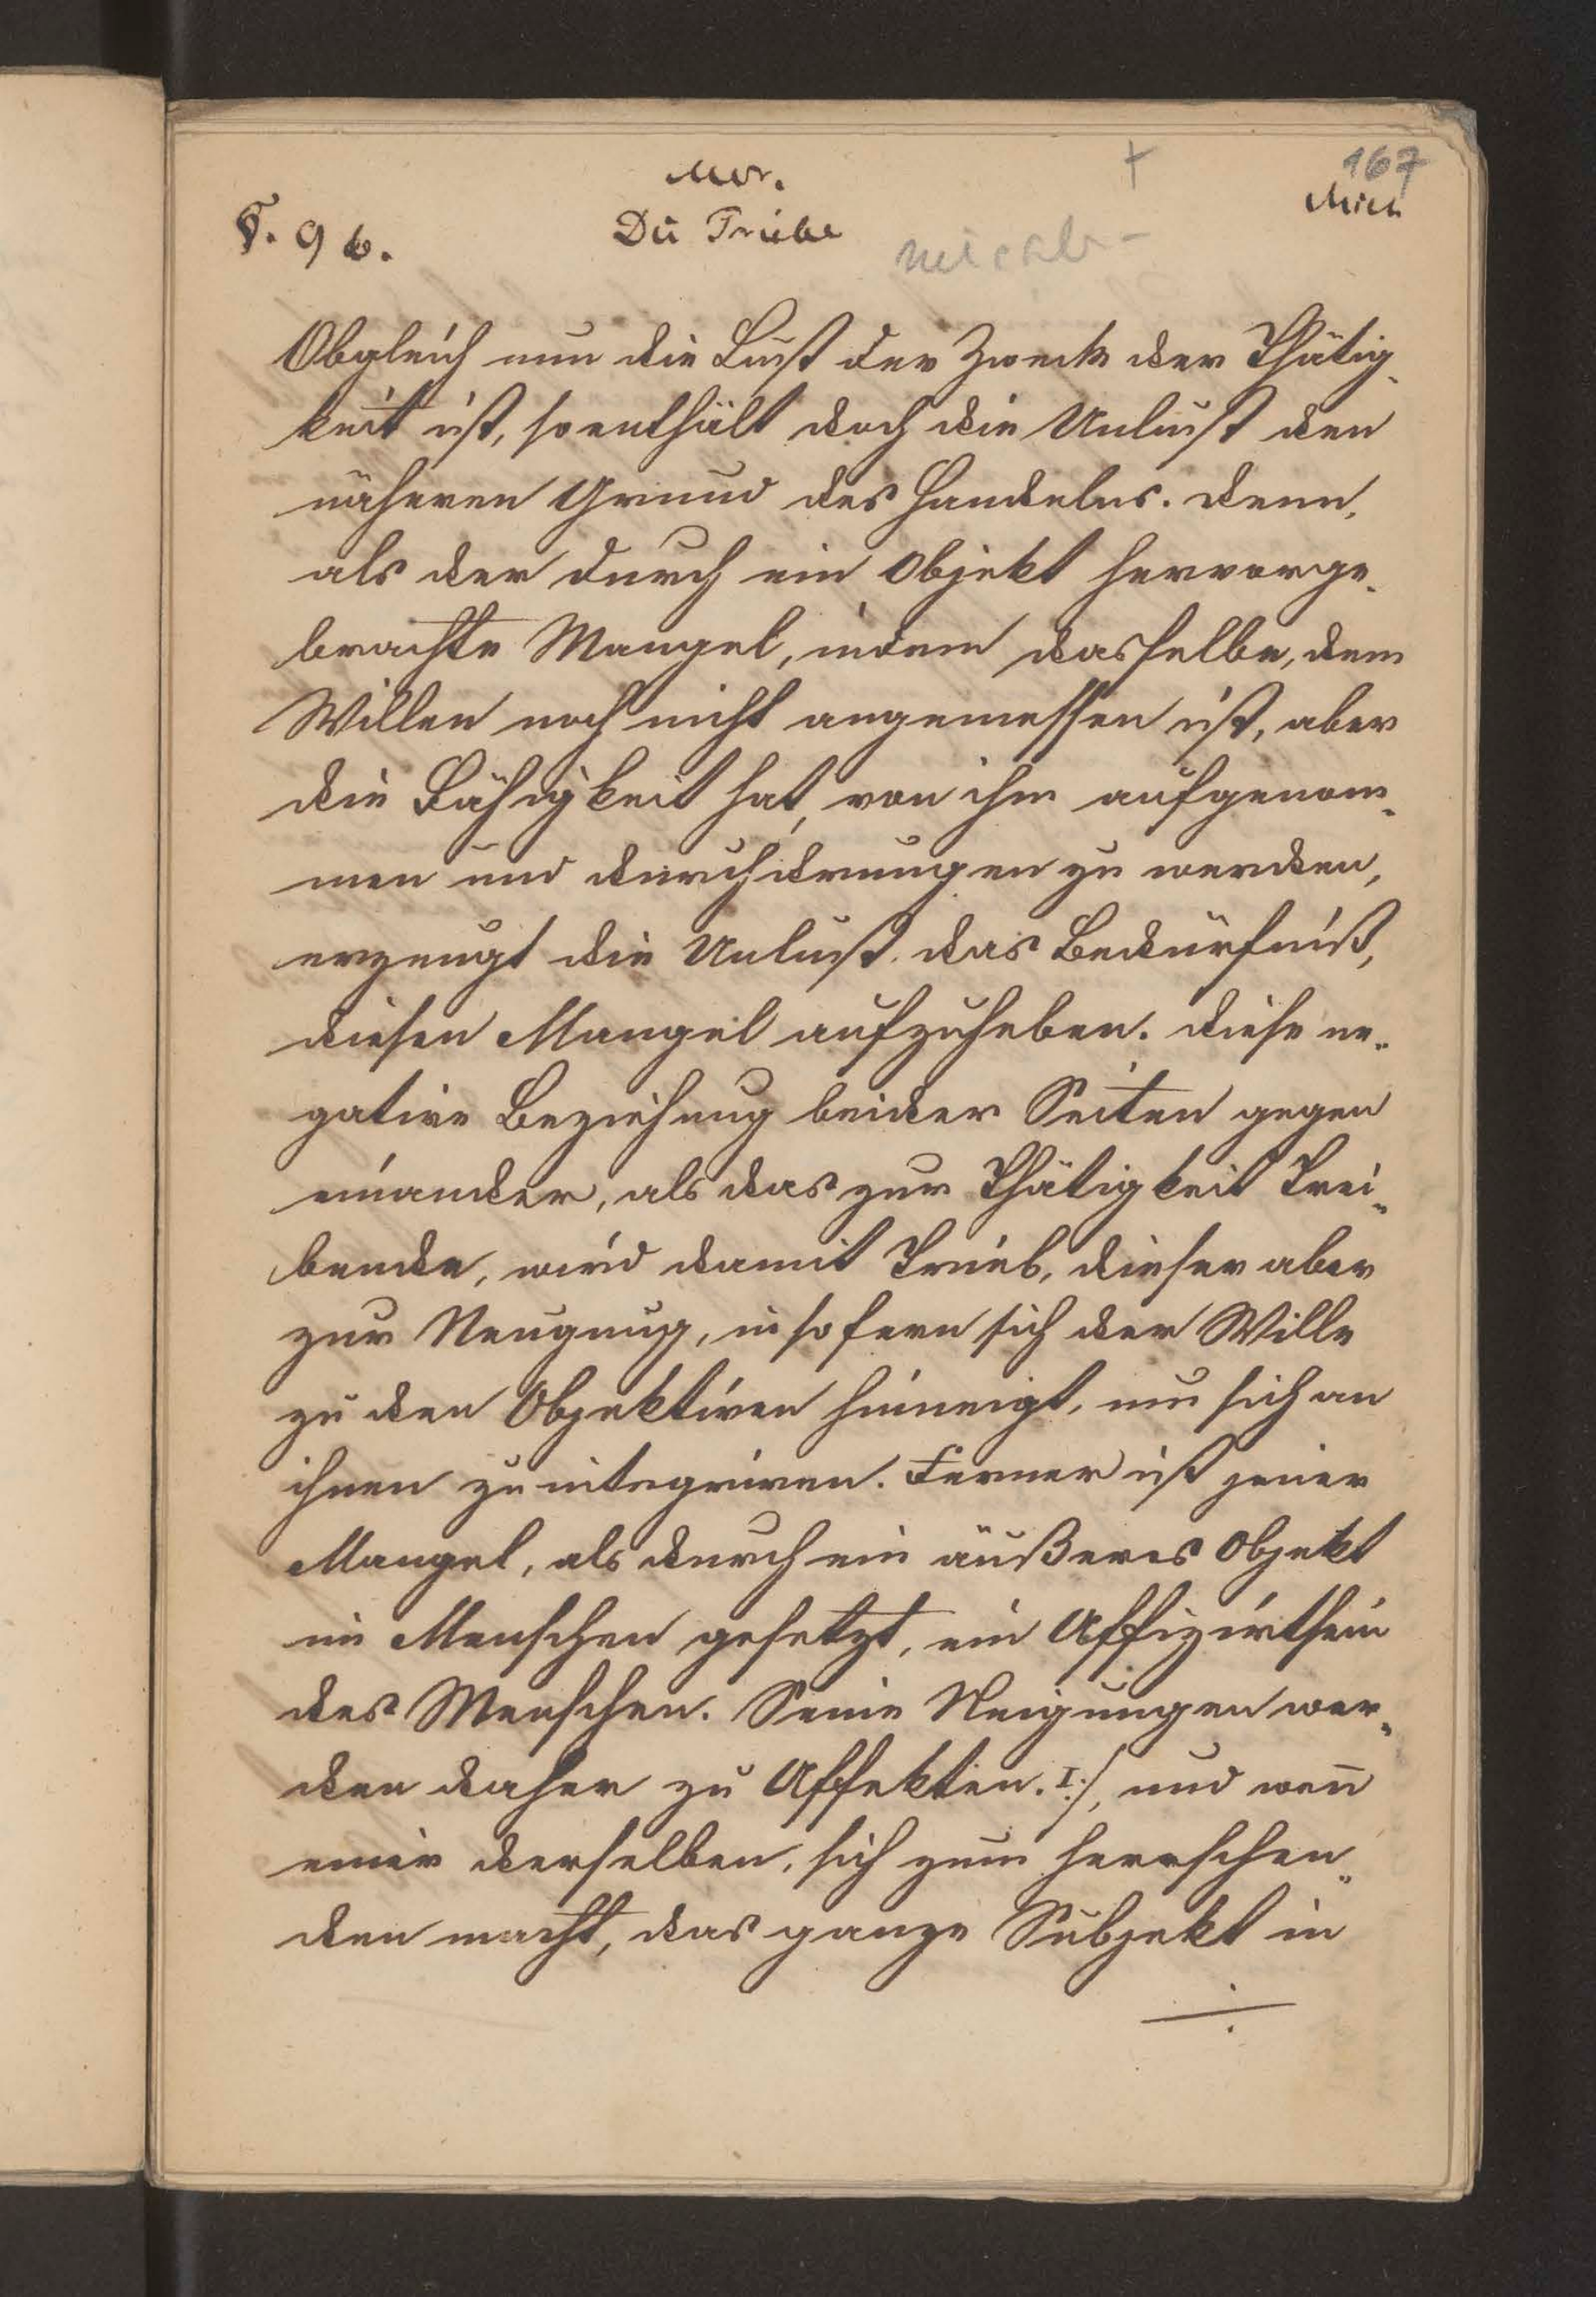 167
Mor.
Mich
§. 96.
Die Triebe
Michel-
Obgleich nun die Lust der Zweck der Thätig-
keit ist, so enthält doch die Unlust den
näheren Grund des Handelns. Denn,
als der durch ein Objekt hervorge-
brachte Mangel, indem dasselbe, dem
Willen noch nicht angemessen ist, aber
die Fähigkeit hat, von ihm aufgenom-
men und durchdrungen zu werden,
erzeugt die Unlust das Bedürfniß,
diesen Mangel aufzuheben. Diese ne-
gative Beziehung beider Seiten gegen
einander, als das zur Thätigkeit Trei-
bende, wird damit Trieb, dieser aber
zur Neugung, insofern sich der Wille
zu den Objektiven hinneigt, um sich an
ihnen zu integriren. Ferner ist jener
Mangel, als durch ein äußeres Objekt
im Menschen gesetzt, ein Affizirtsein
des Menschen. Seine Neigungen wer-
den daher zu Affekten. I:/, und wen̄
einer derselben, sich zum herrschen-
den macht, das ganze Subjekt in